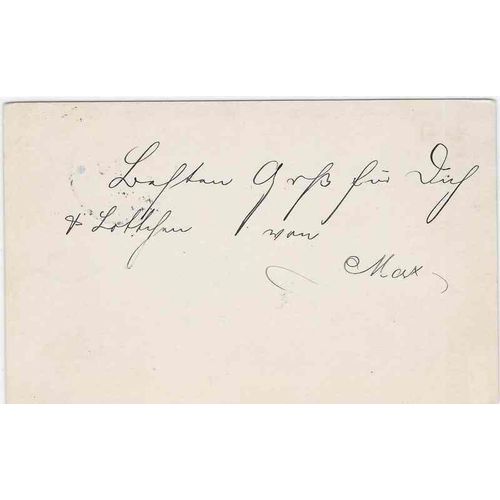 Besten Gruß für Dich
& Lottchen von
Max